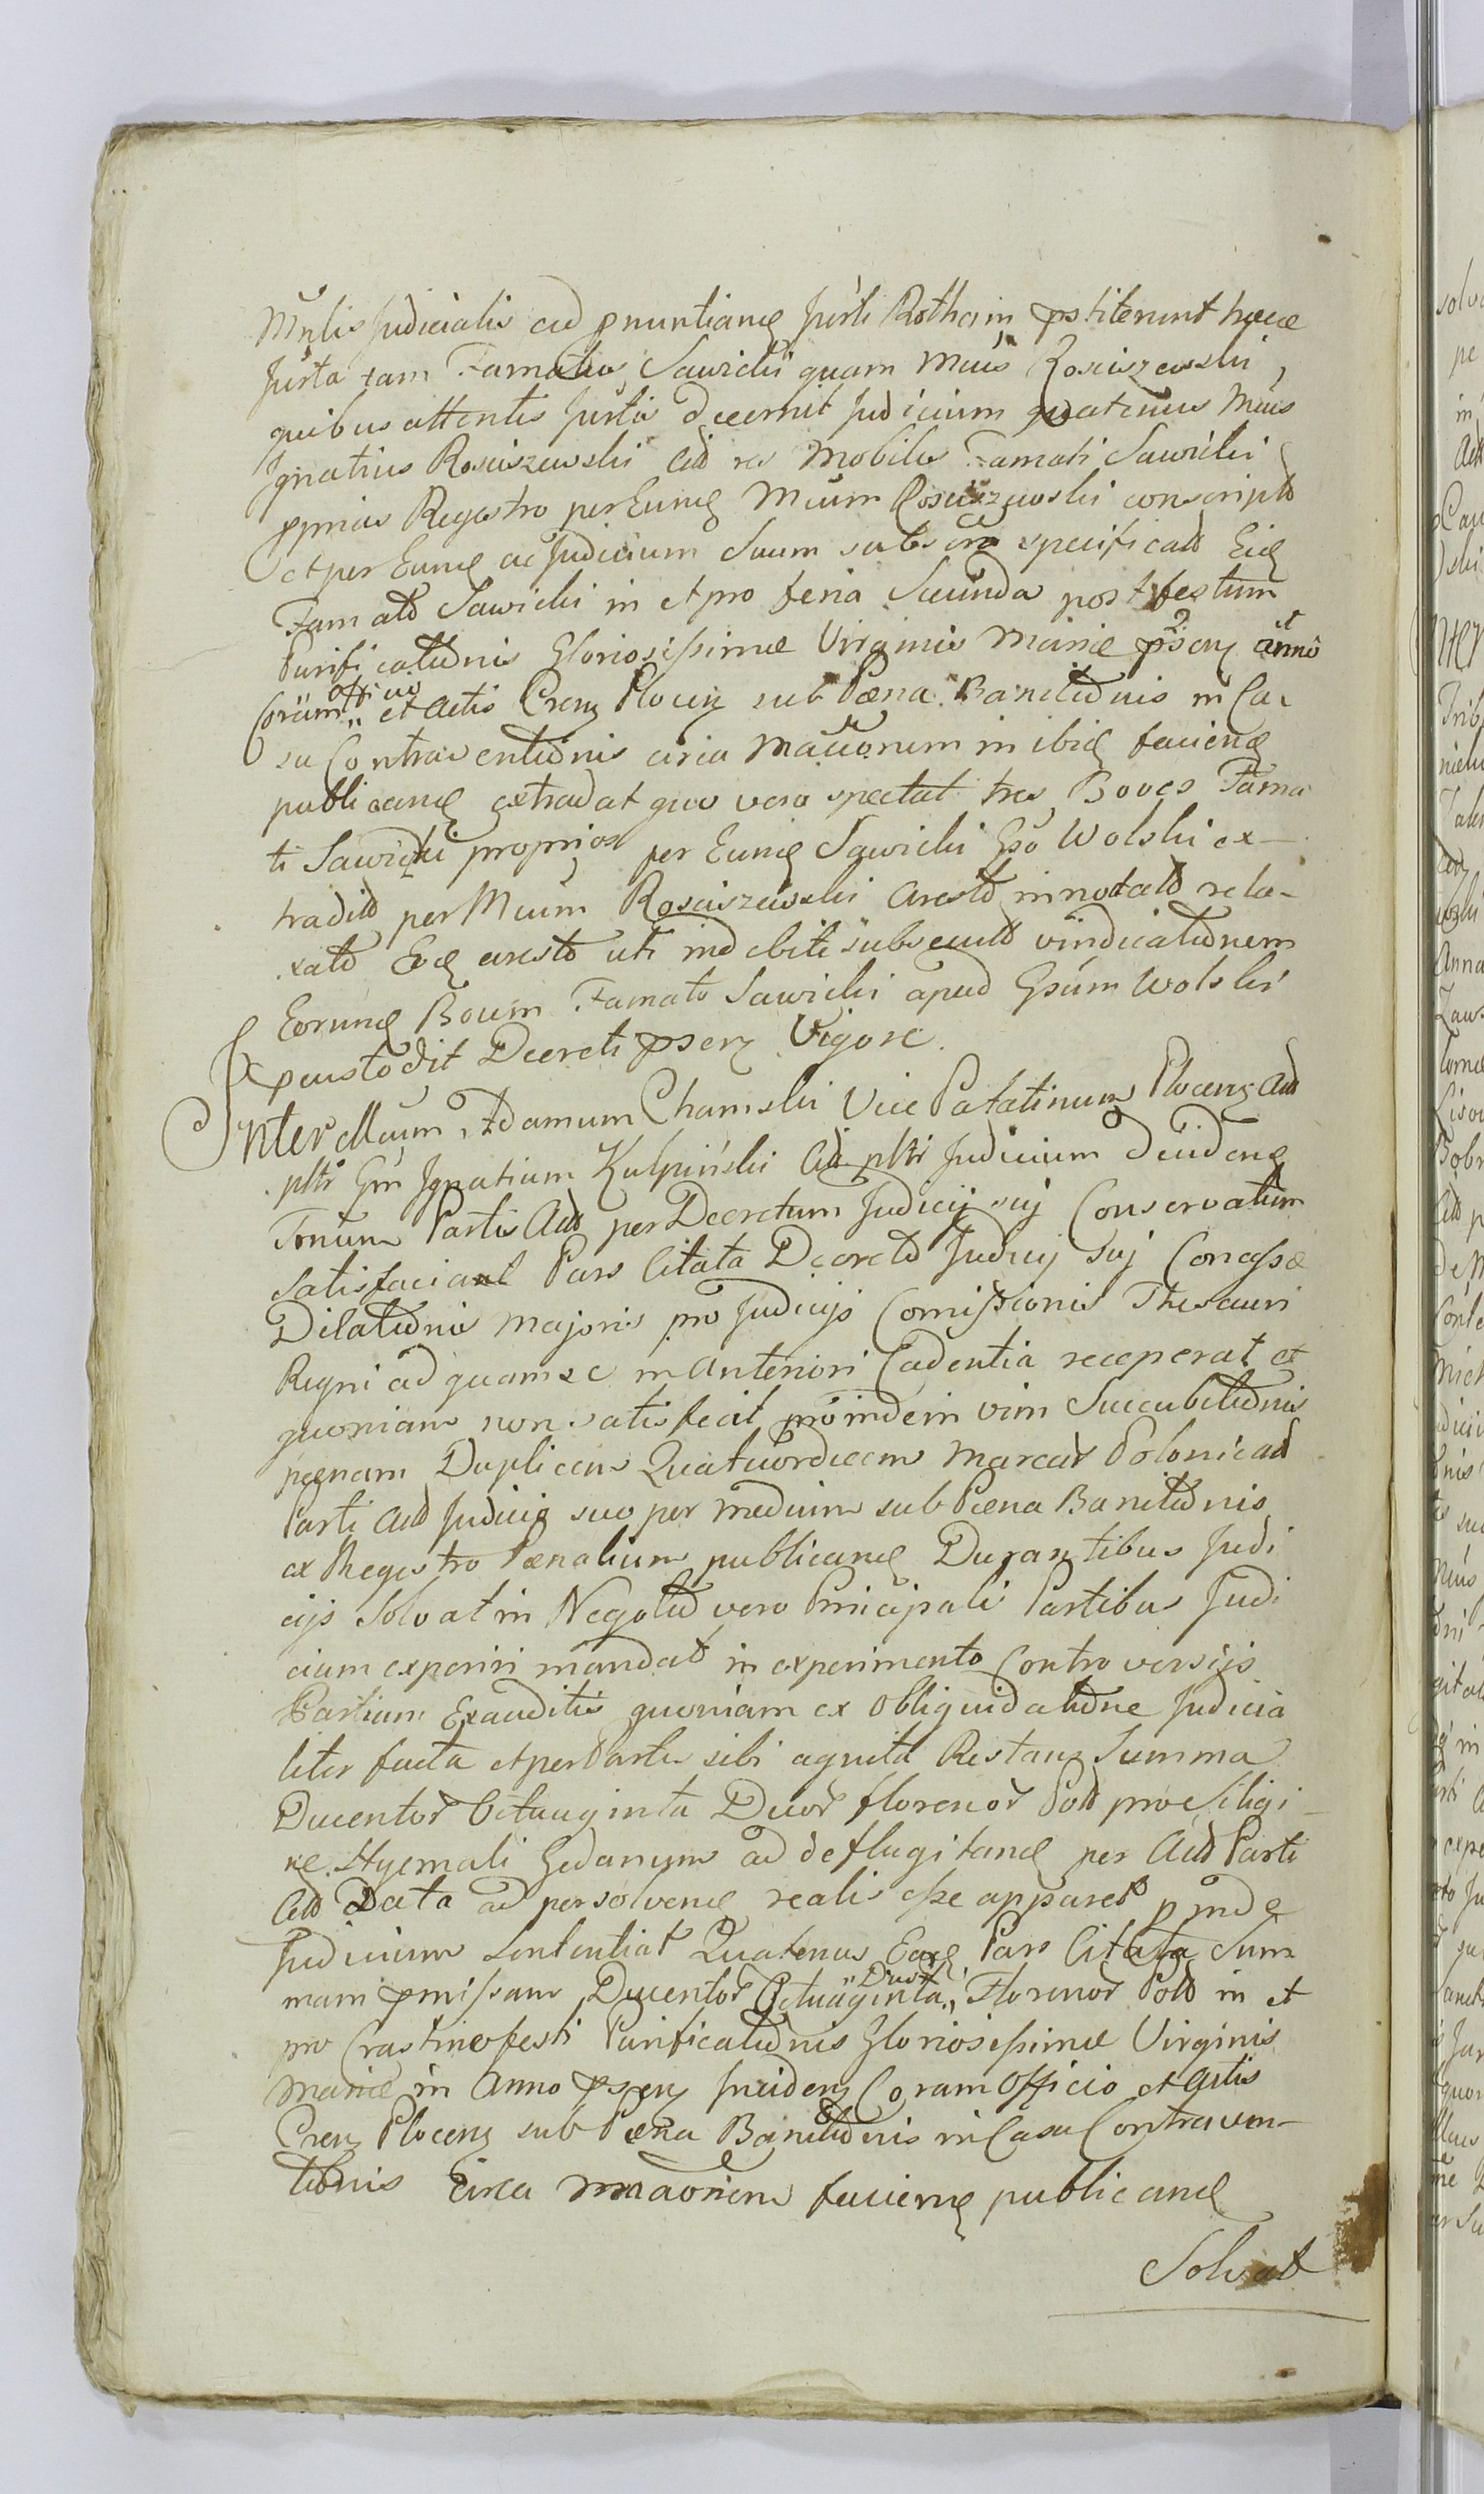 Mnlis Judicialis ad pnuntianę Jurti Rotham pstiterunt hacce
Jurta tam Famatus Sawicki quam Mcus Rosciszewski,
quibus attentis Jurtis decernit Judicium quatenus Mcus
Ignatius Rosciszewski Citt res Mobiles Famati Sawicki
pprias Regestro per Eunę Mcum Rosciszewski conscripto
et per Eunę ac Judicium Suum subscro specificatt Eidę
Famato Sawicki in et pro feria Secunda post festum
Purificationis Gloriosissimæ Virginis Mariæ pserę anni
Coram officio et Actis Crenę Plocenę sub Pæna Banitionis in Ca-
su Contraventionis circa Maciionem in ibidę facienę
publicanę extradat quo vero spectat tres Boves Fama
ti Sawicki proprios per Eunę Sawicki Gso Wolski ex-
tradito per Mcum Rosciszewski aresto innodato rela-
xato Eoę aresto uti indebite subsecuto vindicationem
Eorunę Boum Famato Sawicki apud Gsum Wolski
pcustodit Decreti pserę Vigore.
Inter Mcum Adamum Chamski Vice Palatinum Plocenę Act
pltr Gm Ignatium Kulpiński Citt pltr Judicium decidenę
Tmum Partis Act per Decretum Judicij sui Conservatum
Satisfaciant Pars Citata Decreto Judicij sui Concessæ
Dilationis majoris pro Judicijs Comissionis Thesauri
Regni ad quam se in anteriori Cadentia receperat et
quoniam non satisfecit proinde in vim Succubitionis
pænam Duplicem Quatuordecem Marcar Polonicatt
Parti Act Judicio suo per medium sub Pæna Banitionis
ex Regestro Pænalium publicanę Durantibus Judi
cijs Solvat in Negotio vero Principali Partibus Judi
cium experiri mandat in experimento Controversijs
Partium Exauditis quoniam ex Obliquidatione Judicia
liter facta et per Partes sibi agnita Restanę Summa
Ducentor Octuaginta Duor florenor Poll pro Siligi-
ne Hyemali Gedanum ad deflugitanę per Act Parti
Citt Data ad persolvenę realis esse apparet pinde
Judicium Sententiat Quatenus Eaę Pars Citata Sum
mam pmissam Ducentor Octuaginta Duor Florenor Poll in et
pro Crastino festi Purificationis Gloriosissimæ Virginis
Mariæ in Anno pserę Incidenę Coram Officio et Actis
Crenę Plocenę sub Pæna Banitionis in Casu Contraven-
tionis circa maonem facienę publicanę
Solvat